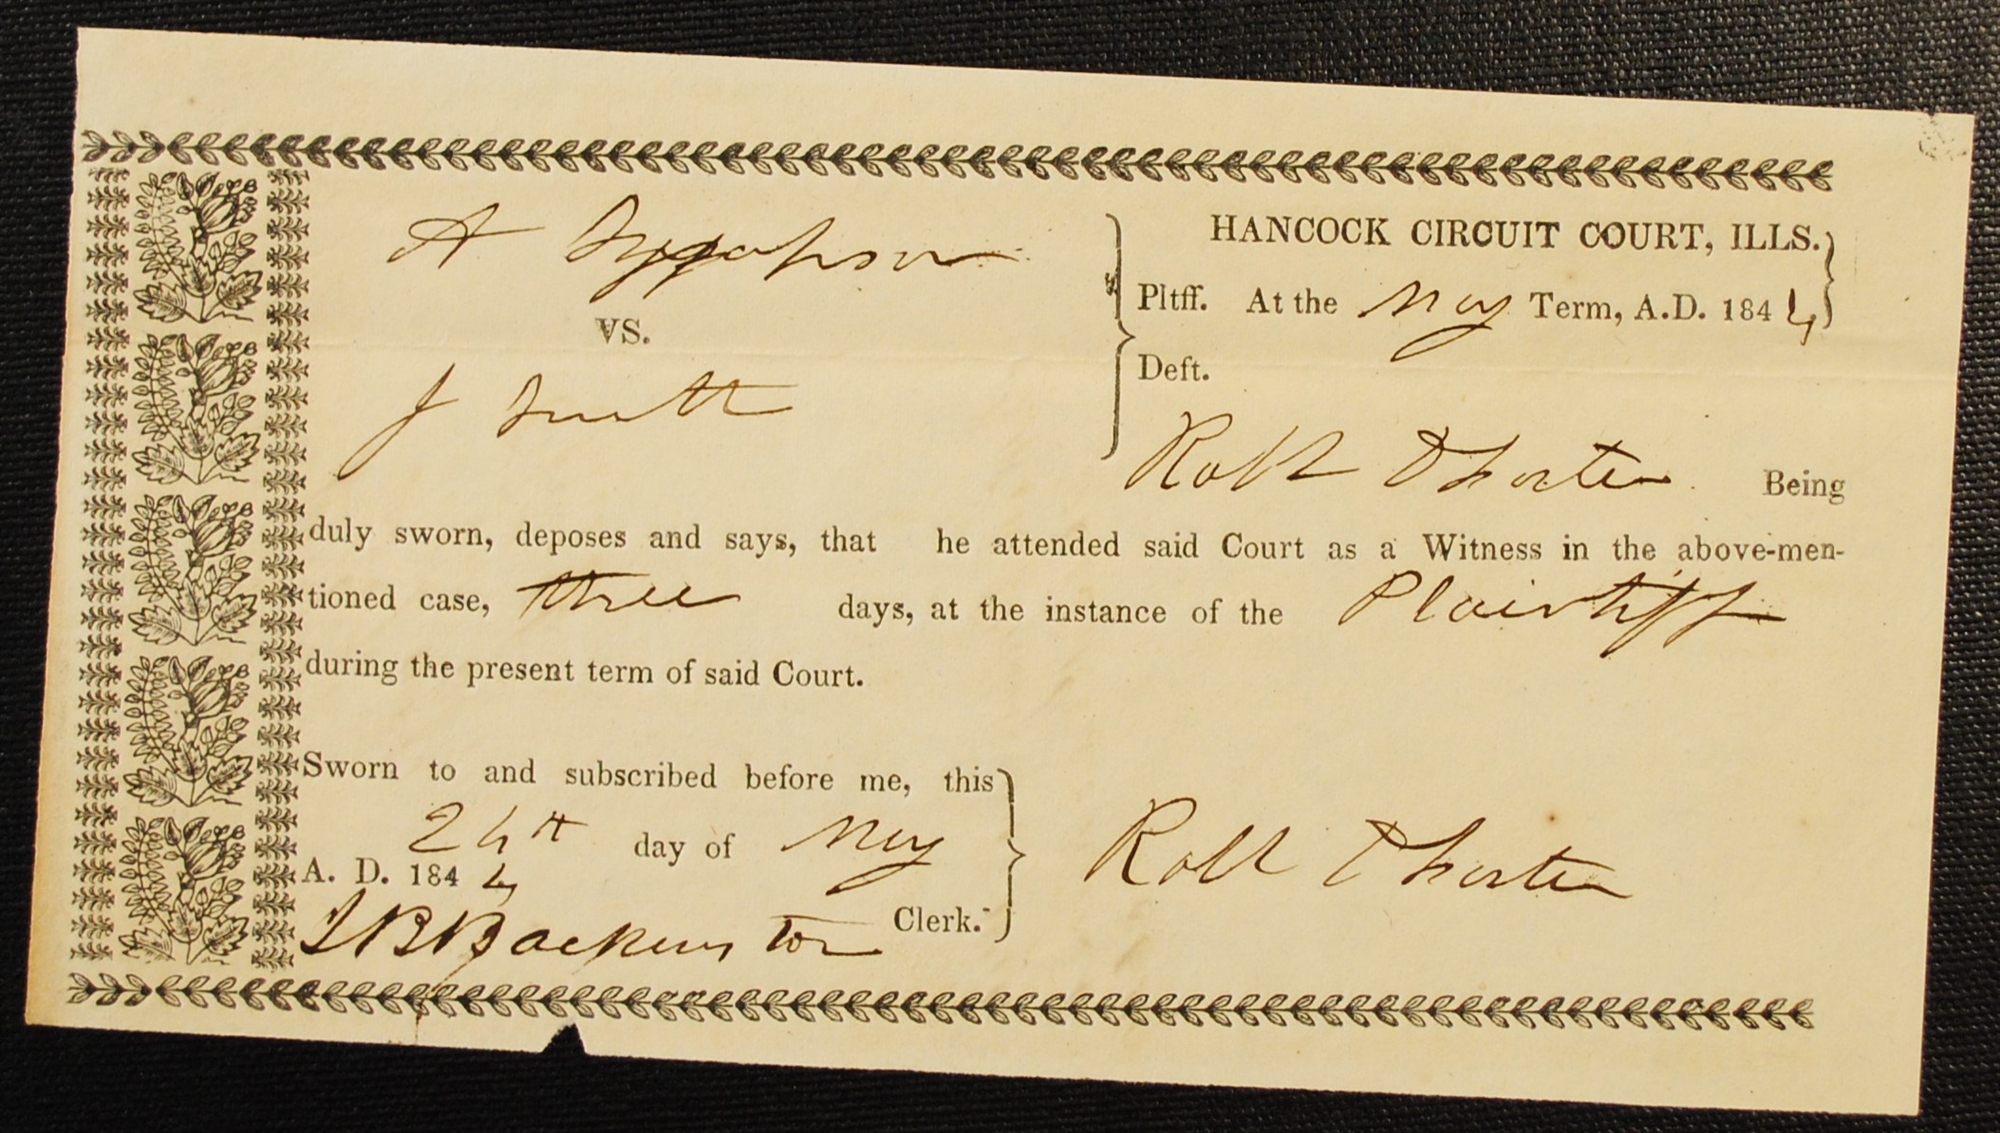 A Sympson
HANCOCK CIRCUIT COURT, ILLS.
Pltff. At the May Term, A.D. 1844
VS.
Deft.
J Smith
Robt Being
duly sworn, deposes and says, that he attended said Court as a Witness in the above-men-
tioned case, three days, at the instance of the Plaintiff
during the present term of said Court.
Sworn to and subscribed before me, this
24th day of May
A. D. 1844
J B Backenstos Clerk.
Robt